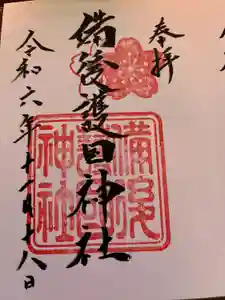 奉拝
備後護国神社
令和六年十月十八日
備後
神社